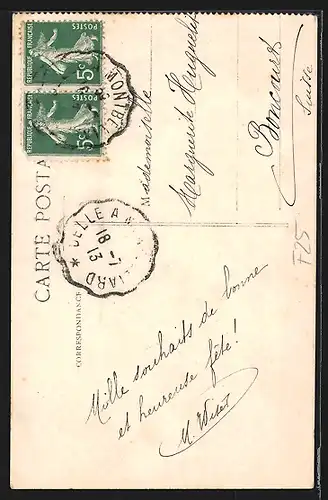 CARTE POSTALE
CORRESPONDANCE
RÉPUBLIQUE FRANÇAISE
POSTES
5c
RÉPUBLIQUE FRANÇAISE
POSTES
5c
MONTB
DELLE A
18 -1
13
Mademoiselle
Marguerite Huguelet
Boncourt
Suisse
Mille souhaits de bonne
et heureuse fête!
F25